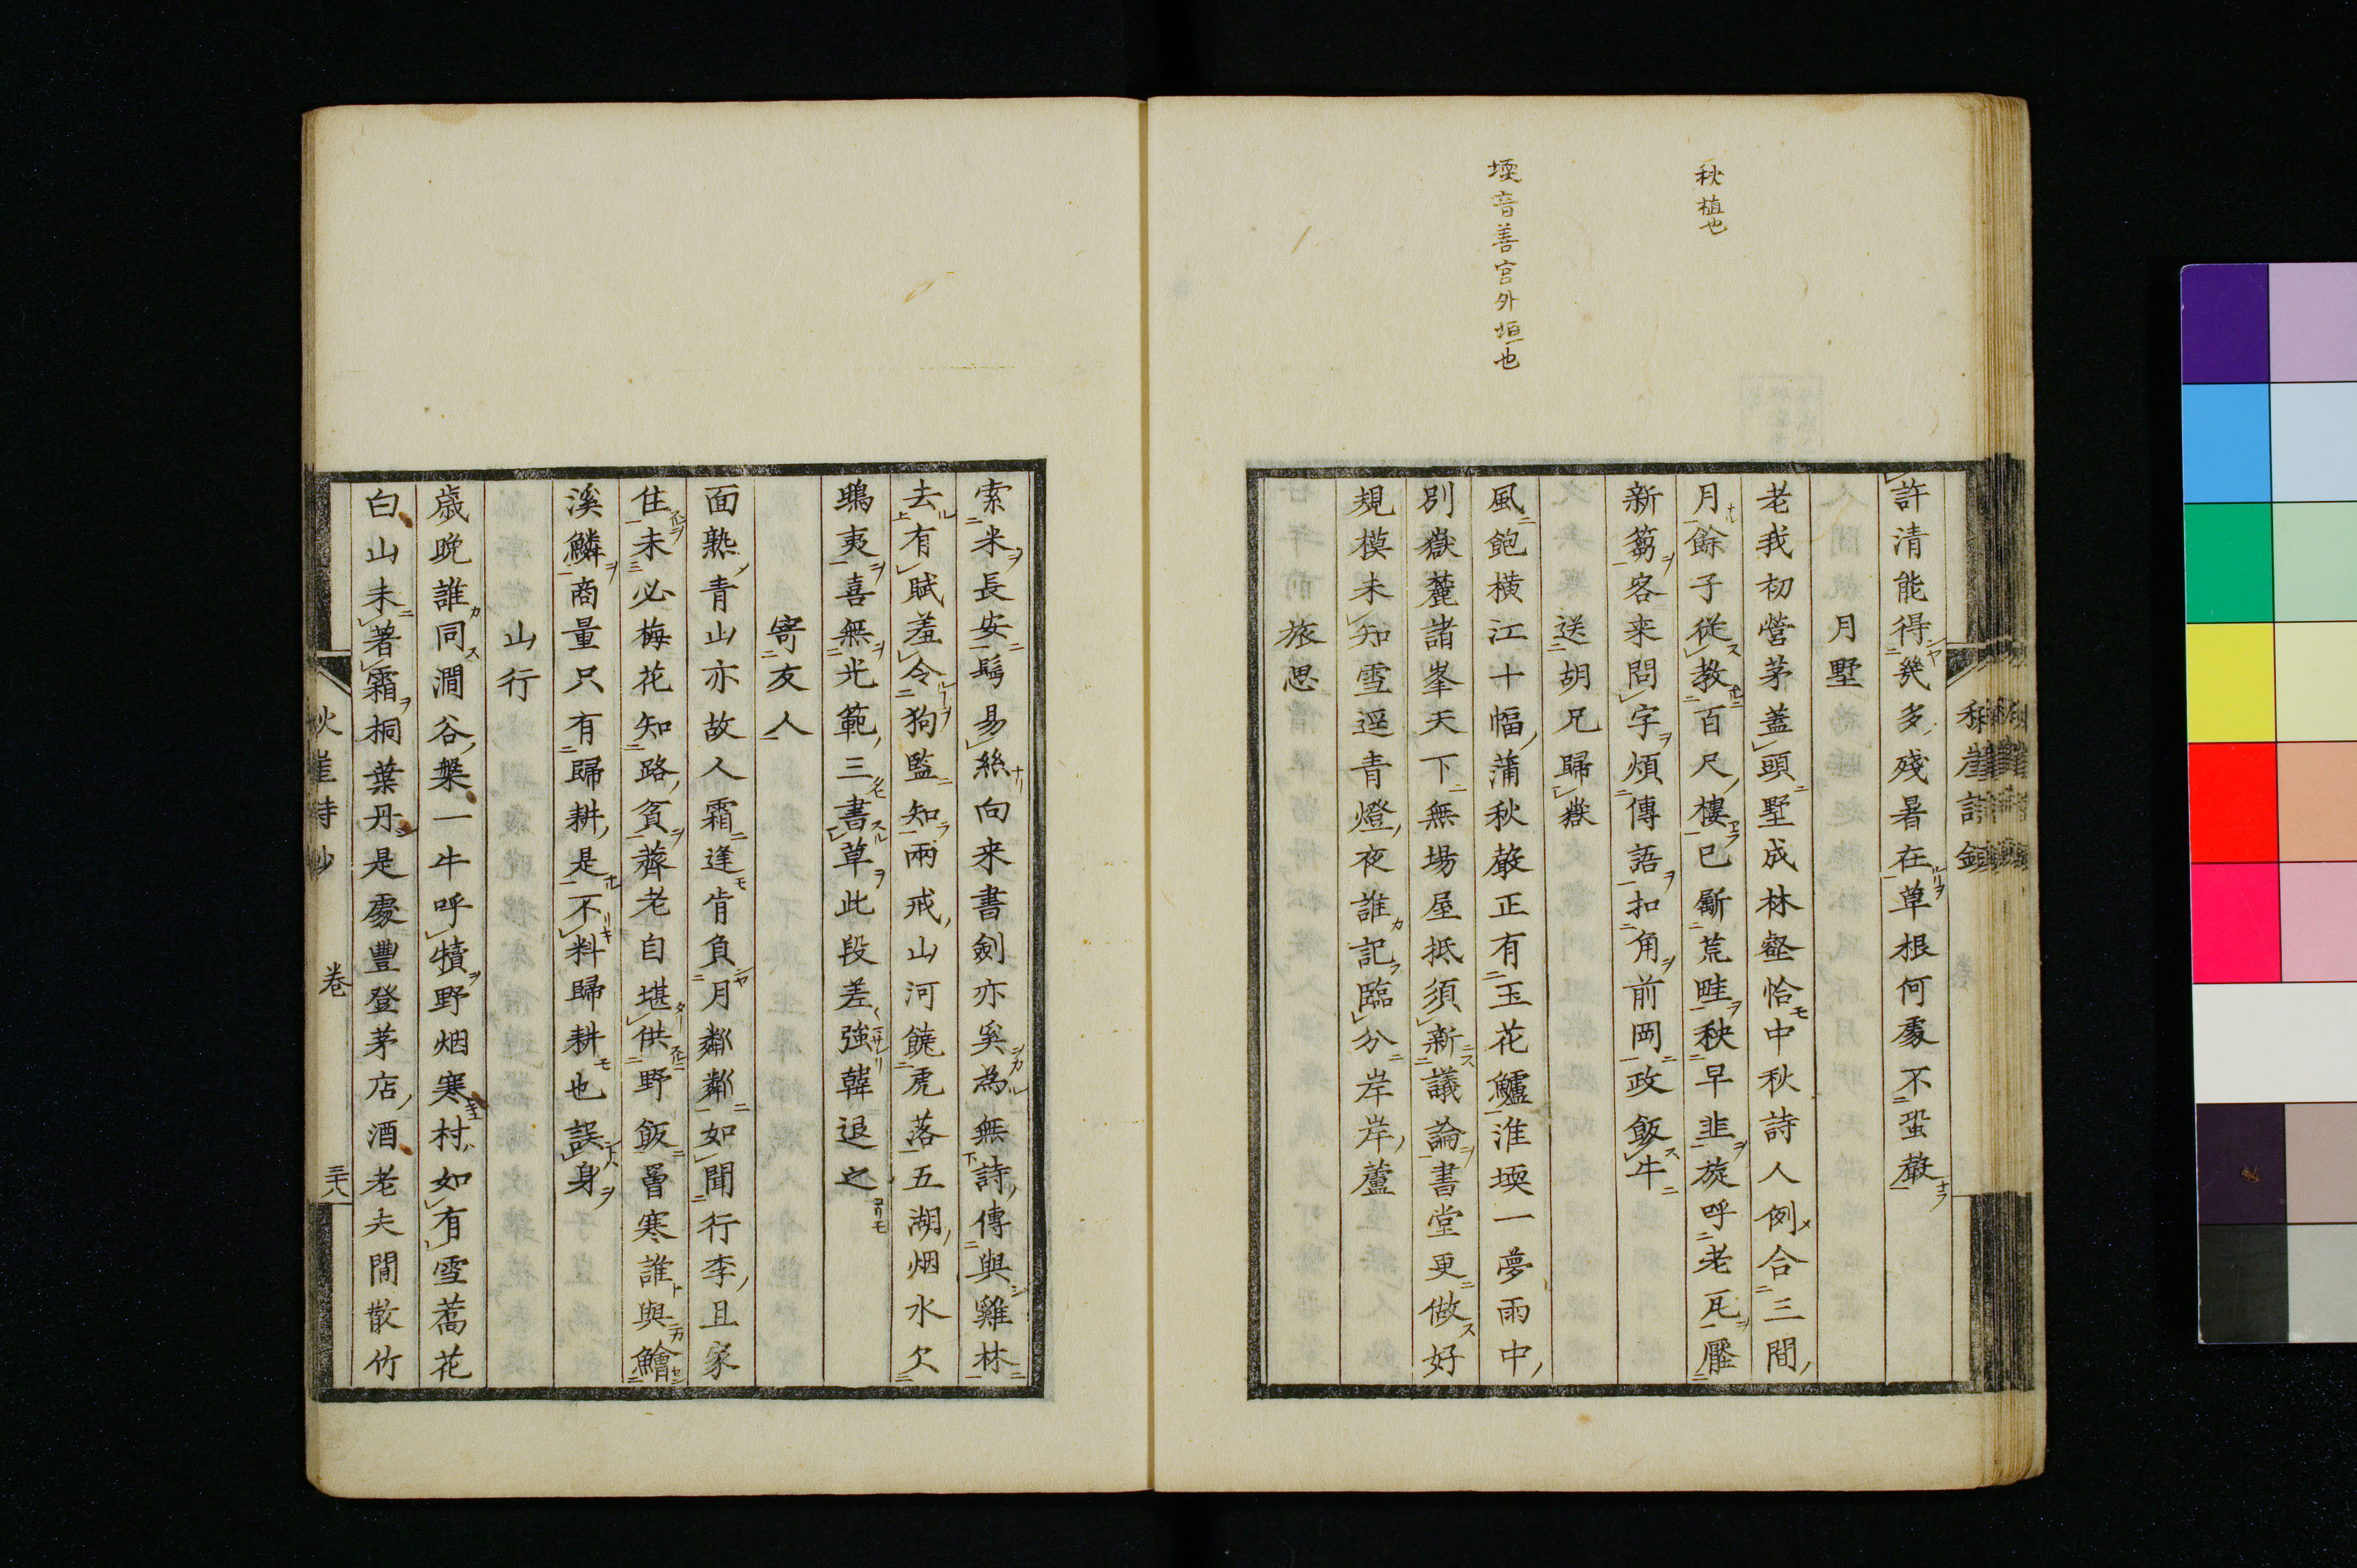 秋植也
堧音善宮外垣也
許清能得幾多残暑在草根何處不蛩聲
月墅
老我初營茅蓋頭墅成林壑恰中秋詩人例合三間
月餘子從教百尺樓已斸荒畦秧早韭旋呼老瓦醱
新篘客来問字煩傳語扣角前岡政飯牛
送胡兄歸嶽
風飽橫江十幅蒲秋聲正有玉花鱸淮堧一夢雨中
別嶽麓諸峯天下無場屋抵須新議論書堂更做好
規模未知雪逕青燈夜誰記臨分岸岸蘆
旅思
索米長安鬂易絲向来書劍亦奚為無詩傳與雞林
去有賦羞令狗監知兩戒山河饒虎落五湖烟水欠
鴟夷喜無光範三書草此段差強韓退之
寄友人
面熟青山亦故人霜逢肯負月粼粼如聞行李且家
住未必梅花知路貧薺老自堪供野飯曾寒誰與鱠
溪鱗商量只有歸耕是不料歸耕也誤身
山行
歳晩誰同澗谷槃一牛呼犢野烟寒村如有雪蕎花
白山未著霜桐葉丹是處豐登茅店酒老夫閒散竹
秋崖詩鈔
卷
三十八